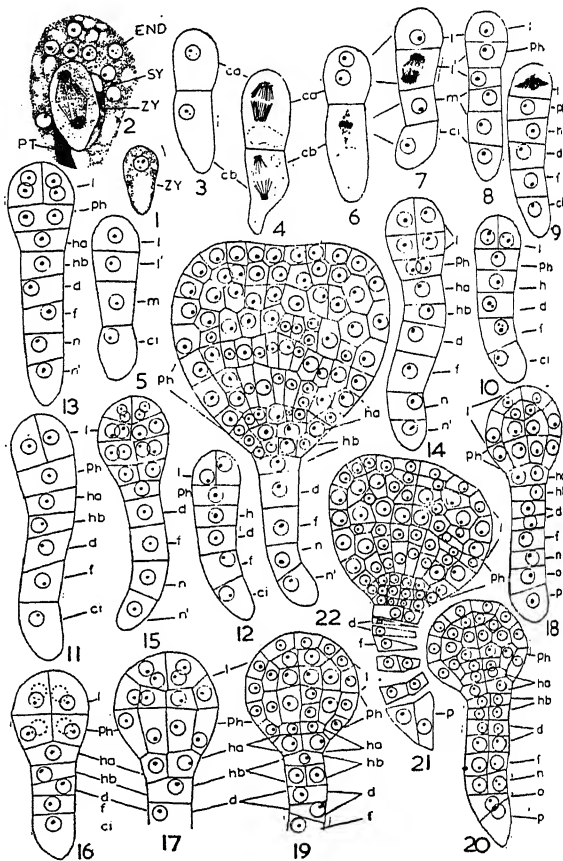 END
SY
ZY
PT
2
ZY
1
3
ca
cb
4
ca
cb
6
l
l'
m
ci
7
l
Ph
8
l
d
f
9
l
Ph
ha
hb
d
f
n
n'
13
l
l'
m
ci
5
Ph
ha
hb
d
f
n
n'
22
l
Ph
ha
hb
d
f
n
n'
14
l
Ph
h
d
f
ci
10
l
Ph
ha
hb
d
f
ci
11
d
f
n
n'
15
l
Ph
h
d
f
ci
12
l
Ph
d
f
p
21
l
Ph
ha
hb
d
f
n
o
p
18
l
Ph
ha
hb
d
f
ci
16
l
Ph
ha
hb
d
17
l
Ph
ha
hb
d
f
19
Ph
ha
hb
d
f
n
o
p
20